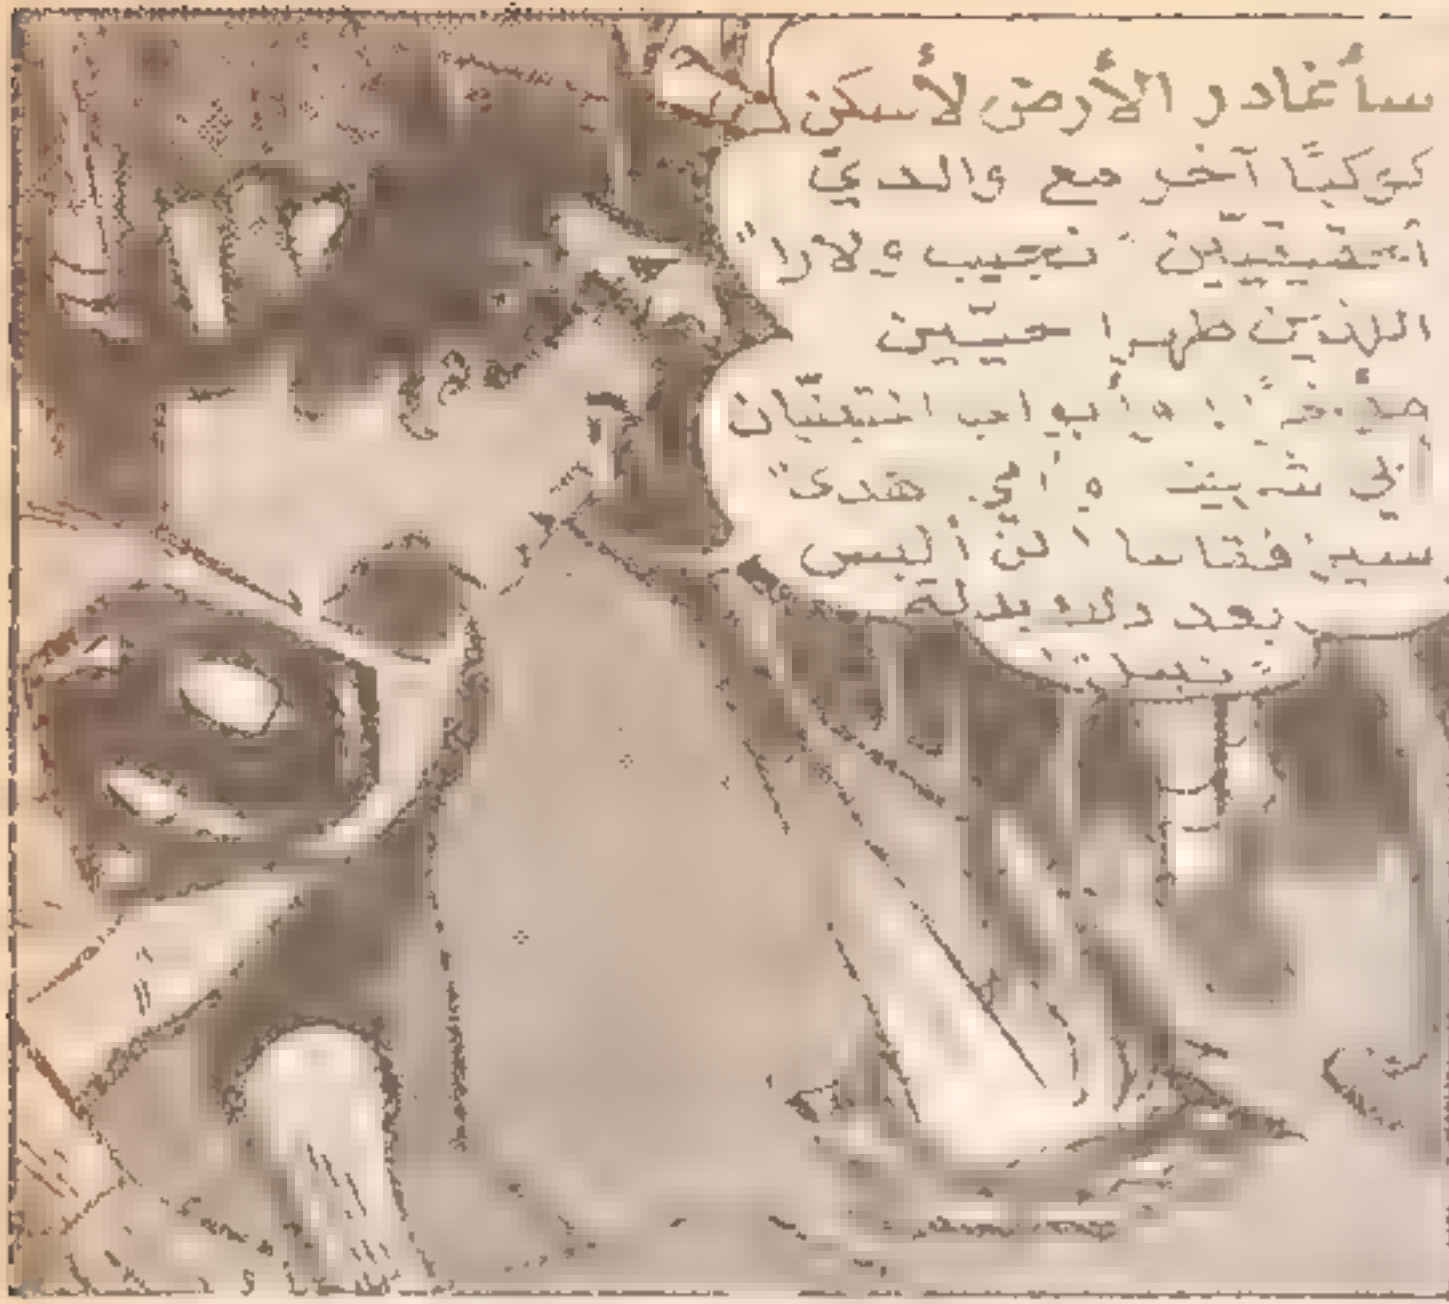 سأغادر الأرض لأسكن
كوكبًا آخر مع والديّ
الحقيقيّين "نجيب ولارا"
اللذين ظهرا حيّين
وأبواي المتبنّيان
وأمي هدى"
سيرافقاننا لن ألبس
بعد ذلك بدلة